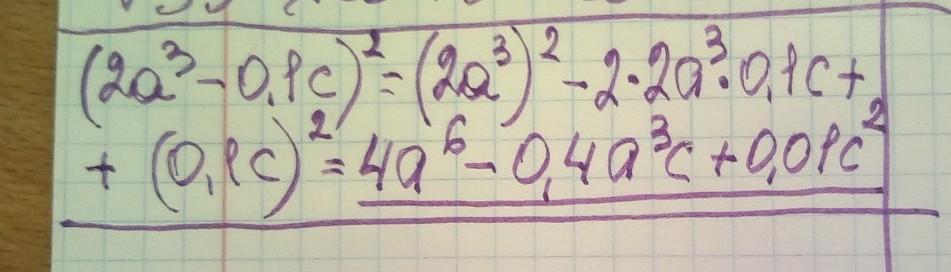 (2a³ - 0,1c)² = (2a³)² - 2·2a³·0,1c +
+ (0,1c)² = 4a⁶ - 0,4a³c + 0,01c²